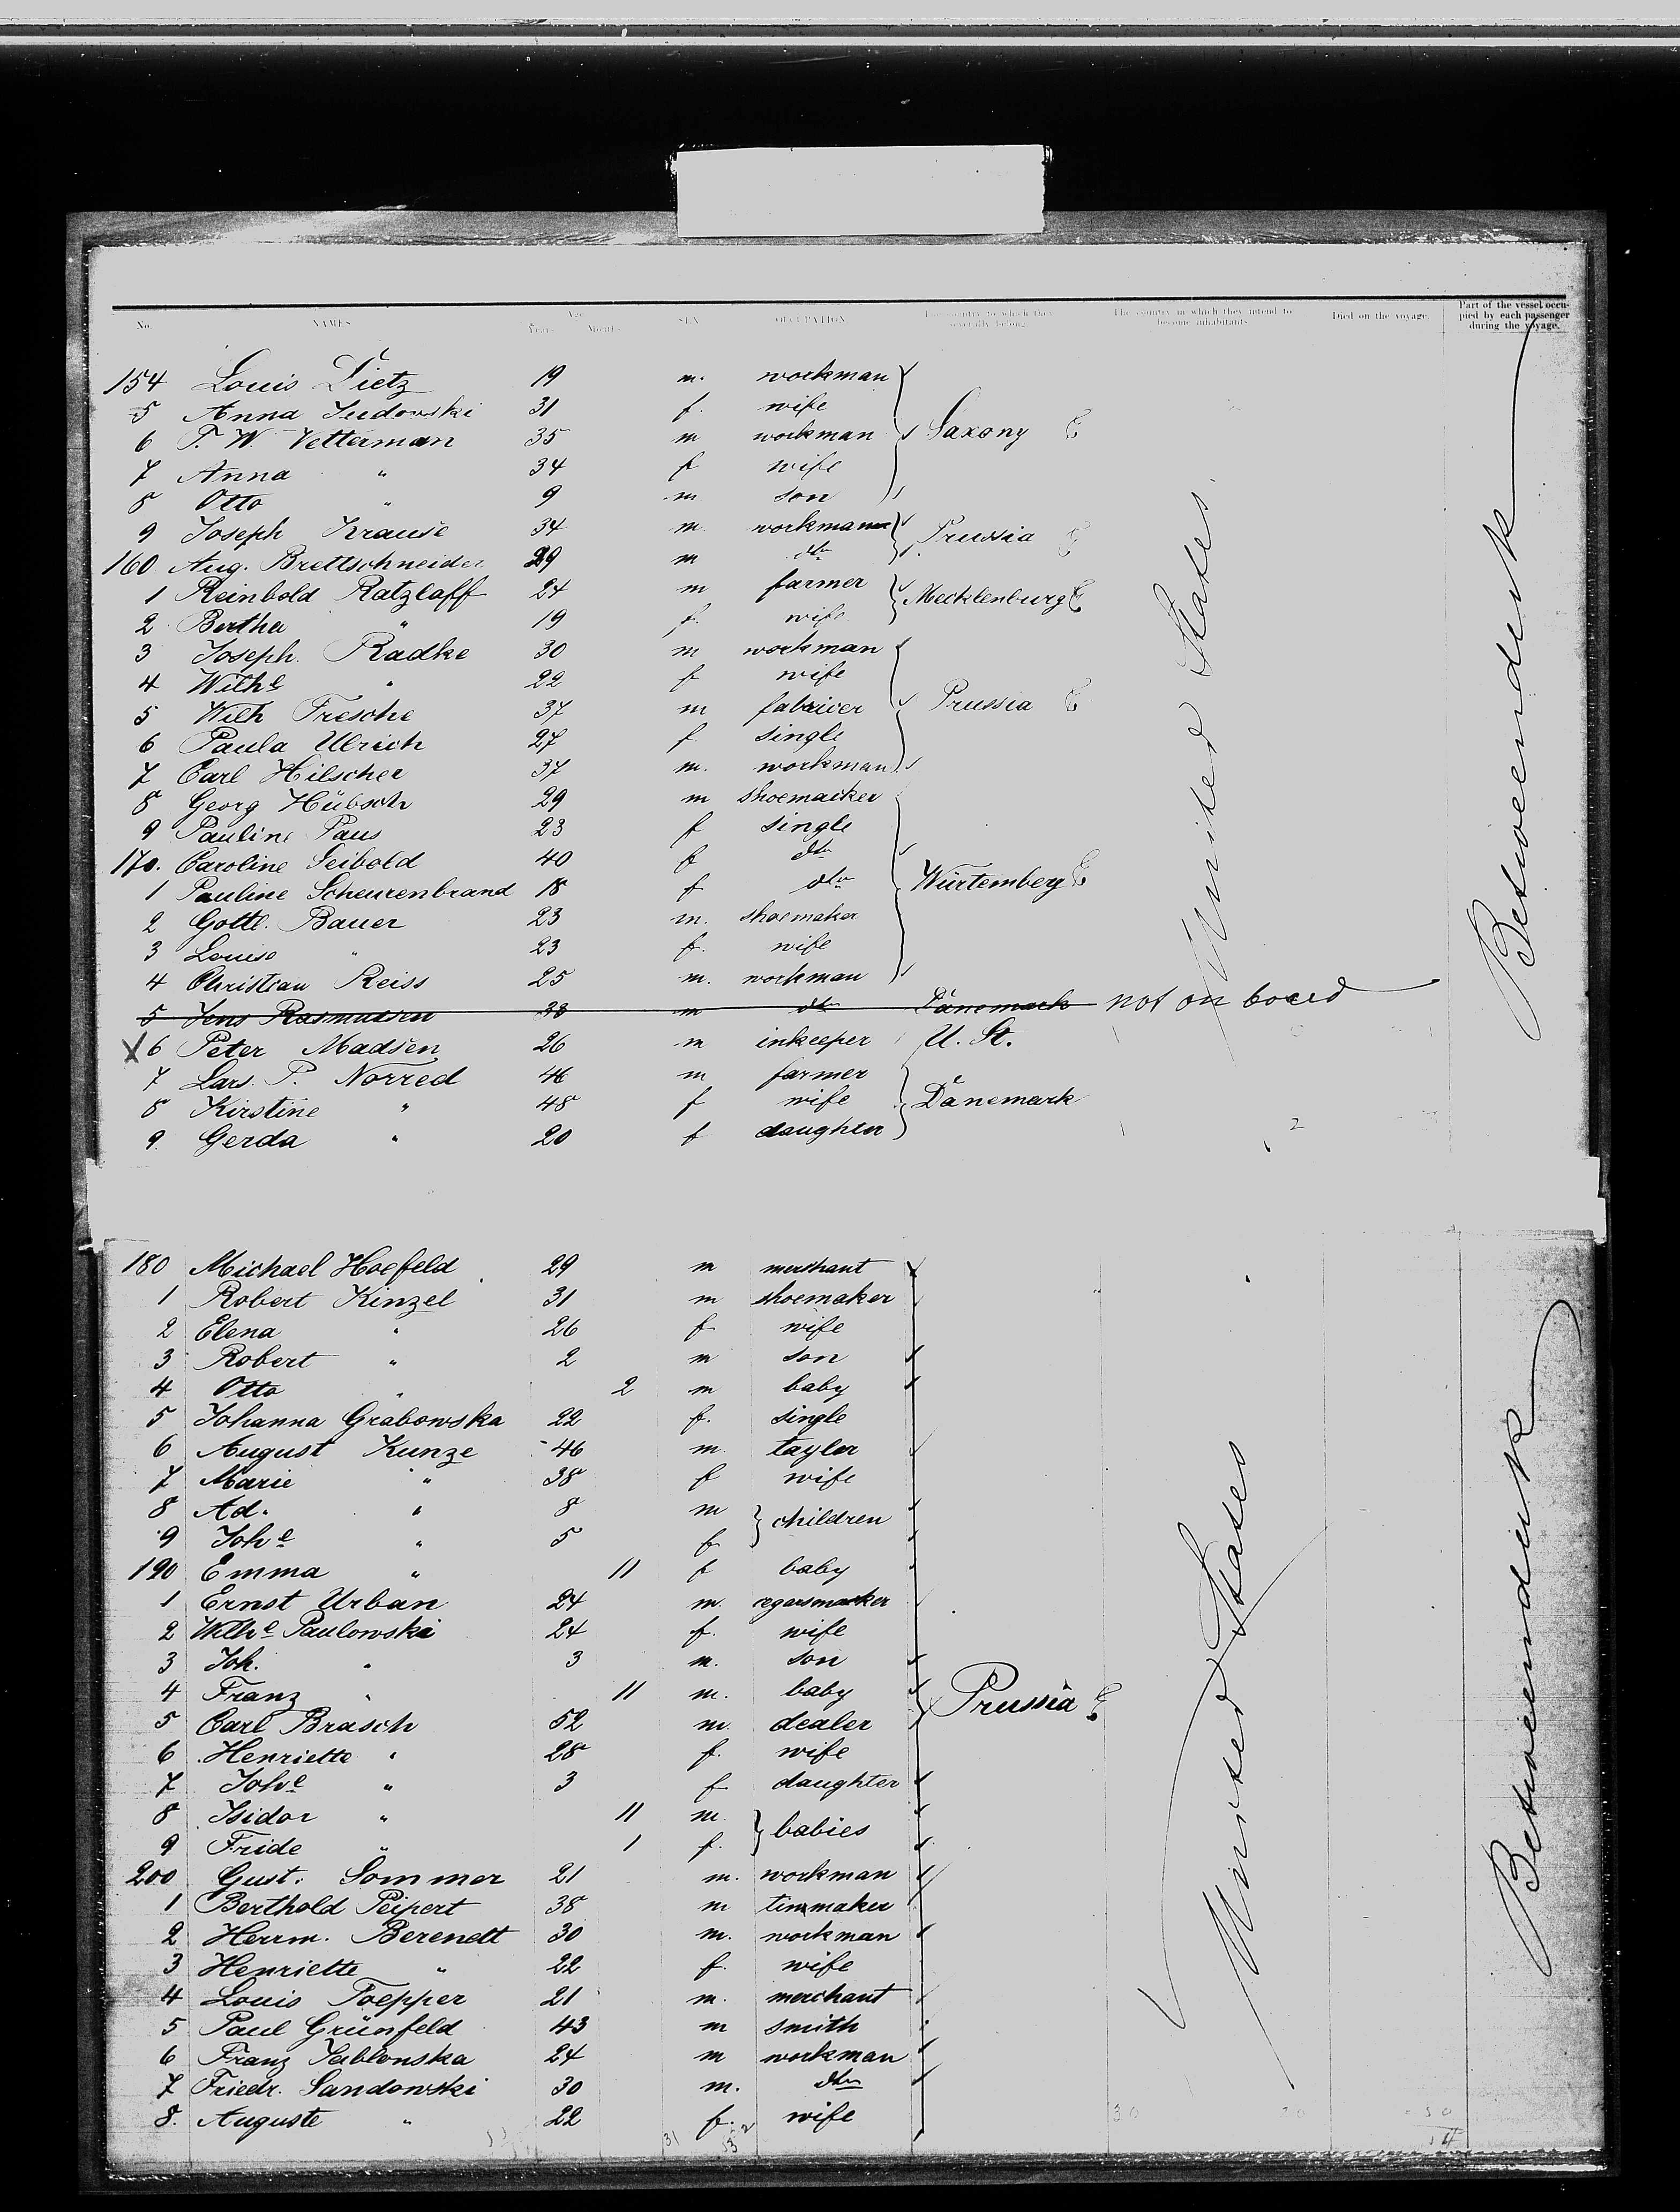 No. NAMES Age Years Months SEX OCCUPATION The country to which they severally belong. The country in which they intend to become inhabitants. Died on the voyage. Part of the vessel occupied by each passenger during the voyage.
154 Louis Dietz 19 m. workman
5 Anna Judowski 31 f. wife
6 F. W. Vetterman 35 m workman Saxony
7 Anna " 34 f wife
8 Otto " 9 m son
9 Joseph Krause 34 m workman Prussia
160 Aug. Brettschneider 29 m dto
1 Reinhold Ratzlaff 24 m farmer Mecklenburg
2 Bertha " 19 f. wife
3 Joseph Radke 30 m workman
4 Wilhe " 22 f wife
5 Wilh Fresche 37 m fabricer Prussia
6 Paula Ulrich 27 f single
7 Carl Hilscher 37 m. workman
8 Georg Hübsch 29 m shoemacker
9 Pauline Paus 23 f single
170. Caroline Seibold 40 f dto
1 Pauline Scheurenbrand 18 f dto Würtemberg
2 Gottl. Bauer 23 m. shoemaker
3 Louise " 23 f. wife
4 Christian Reiss 25 m. workman
5 Jens Rasmussen 28 m dto Dänemark not on board
X 6 Peter Madsen 26 m inkeeper U. St.
7 Lars. P. Norred 46 m farmer
8 Kirstine " 48 f wife Dänemark
9. Gerda " 20 f daughter
United States.
Betweendeck
180 Michael Hoefeld 29 m merchant
1 Robert Kinzel 31 m shoemaker
2 Elena " 26 f wife
3 Robert " 2 m son
4 Otto " 2 m baby
5 Johanna Grabowska 22 f. single
6 August Kunze 46 m. tayler
7 Marie " 38 f wife
8 Ad. " 8 m children
9 Johe " 5 f
190 Emma " 11 f baby
1 Ernst Urban 24 m. cegarsmacker
2 Wilhe Paulowski 24 f. wife
3 Joh. " 3 m. son
4 Franz " 11 m. baby Prussia
5 Carl Brasch 52 m. dealer
6 Henriette " 28 f. wife
7 Johe " 3 f daughter
8 Isidor " 11 m. babies
9 Fride " 1 f.
200 Gust. Sommer 21 m. workman
1 Berthold Peipert 38 m tinmaker
2 Herrm. Berendt 30 m. workman
3 Henriette " 22 f. wife
4 Louis Toepper 21 m. merchant
5 Paul Grünfeld 43 m smith
6 Franz Jablonska 24 m workman
7 Friedr. Sandowski 30 m. dto
8. Auguste " 22 f. wife
United States
Betweendeck